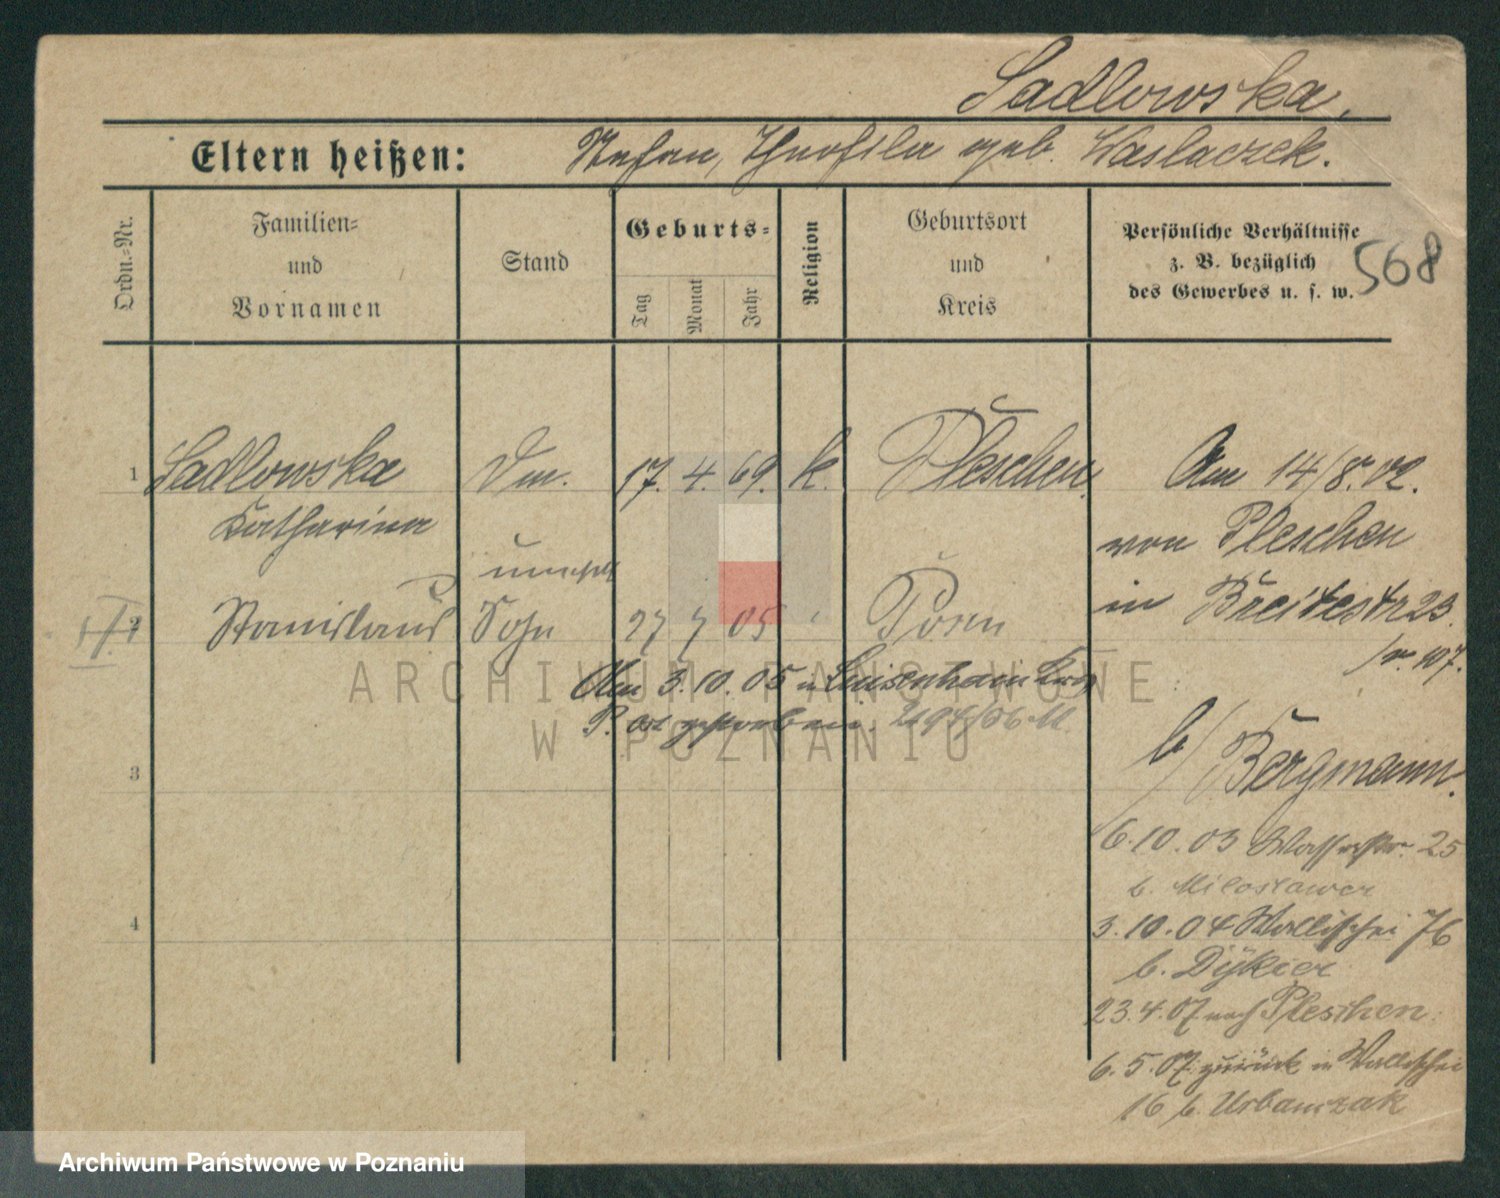 Sadlowska.
Eltern heißen: Stefan, Theofila geb. Waslaczek.
Ordn.-Nr.
Familien-
und
Vornamen
Stand
Geburts-
Tag
Monat
Jahr
Religion
Geburtsort
und
Kreis
Persönliche Verhältnisse
z. B. bezüglich
des Gewerbes u. s. w.
568
1 Sadlowska 17. 4. 69. k. Pleschen.
Katharina
unehel
2 Stanislaus Sohn 27 7 05 Posen
Am 3.10.05 in
gestorben. 2194/06 M
3
4
Am 14/8.02.
von Pleschen
in Breitestr 23.
b/ Bergmann.
6.10.03 Wasserstr. 25
b. Miloslawer
3.10.04 Wallischei 76
b. Dykier
23.4.07 nach Pleschen.
6.5.07. zurück in Wallischei
16 b. Urbanczak
ARCHIWUM PAŃSTWOWE
W POZNANIU
Archiwum Państwowe w Poznaniu